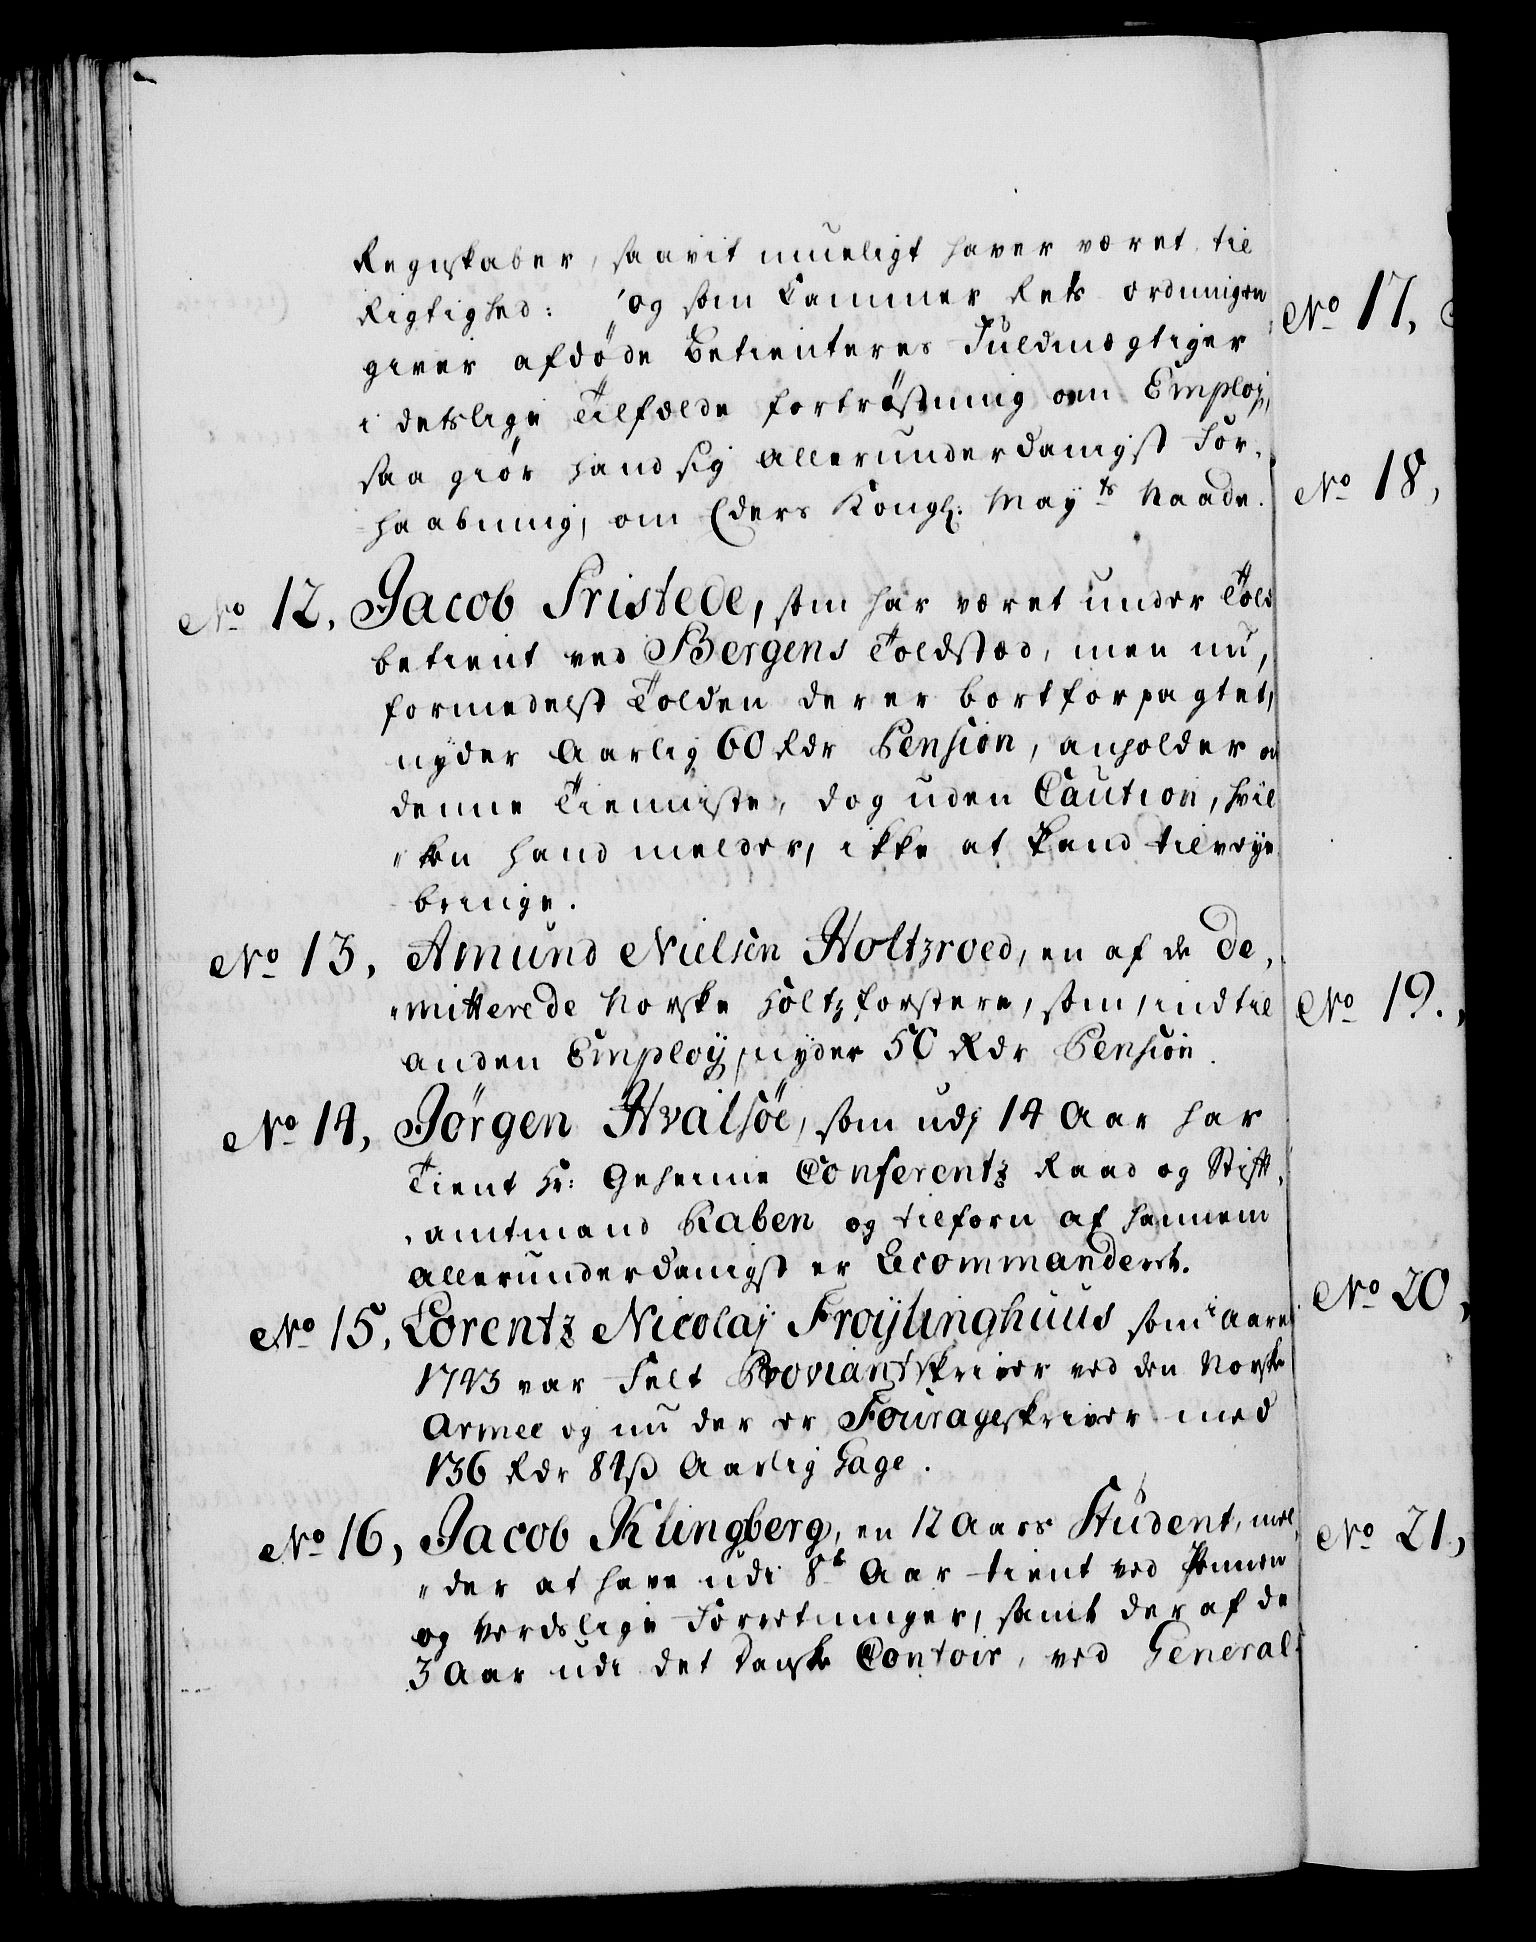 Regnskaber, saavit mueligt haver været til
Rigtighed: og som Cammer Rets ordningen
giver afdøde Betienteres Fuldmægtiger
i detslige Tilfælde fortrøstning om Employ,
saa giør hand sig allerunderdanigst For-
haabning, om Eders Kongl: Mayts Naade.
No 12, Jacob Fristede, som har været under Told
betient ved Bergens Toldstæd, men nu,
formedelst Tolden der er bortforpagtet,
nyder Aarlig 60 Rdr Pension, anholder om
denne Tienniste, dog uden Caution, hvil
"ken hand melder, ikke at kand tilveye
bringe.
No 13, Amund Nielsen Holtzroed, en af de De,
"mitterede Norske Holtzforstere, som, indtil
anden Employ, nyder 50 Rdr Pension.
No 14, Jørgen Hvalsöe, som udj 14 Aar har
Tient Hr: Geheime Conferentz Raad og Stift,
,amtmand Raben og tilforn af hannem
allerunderdanigst er Recommanderet.
No 15, Lorentz Nicolaj Frøylinghuus som i aaret
1743 var Felt Proviantskriver ved den Norske
Armee og nu der er Fourageskriver med
136 Rdr 84 ß Aarlig Gage.
No 16, Jacob Klingberg, en 12 Aars Student, mel,
"der at have udi 8te Aar tient ved Pennen
og Verdslige Forretninger, samt deraf de
3 Aar udi det Danske Contoir, ved General-
No 17,
No 18,
No 19.,
No 20,
No 21,